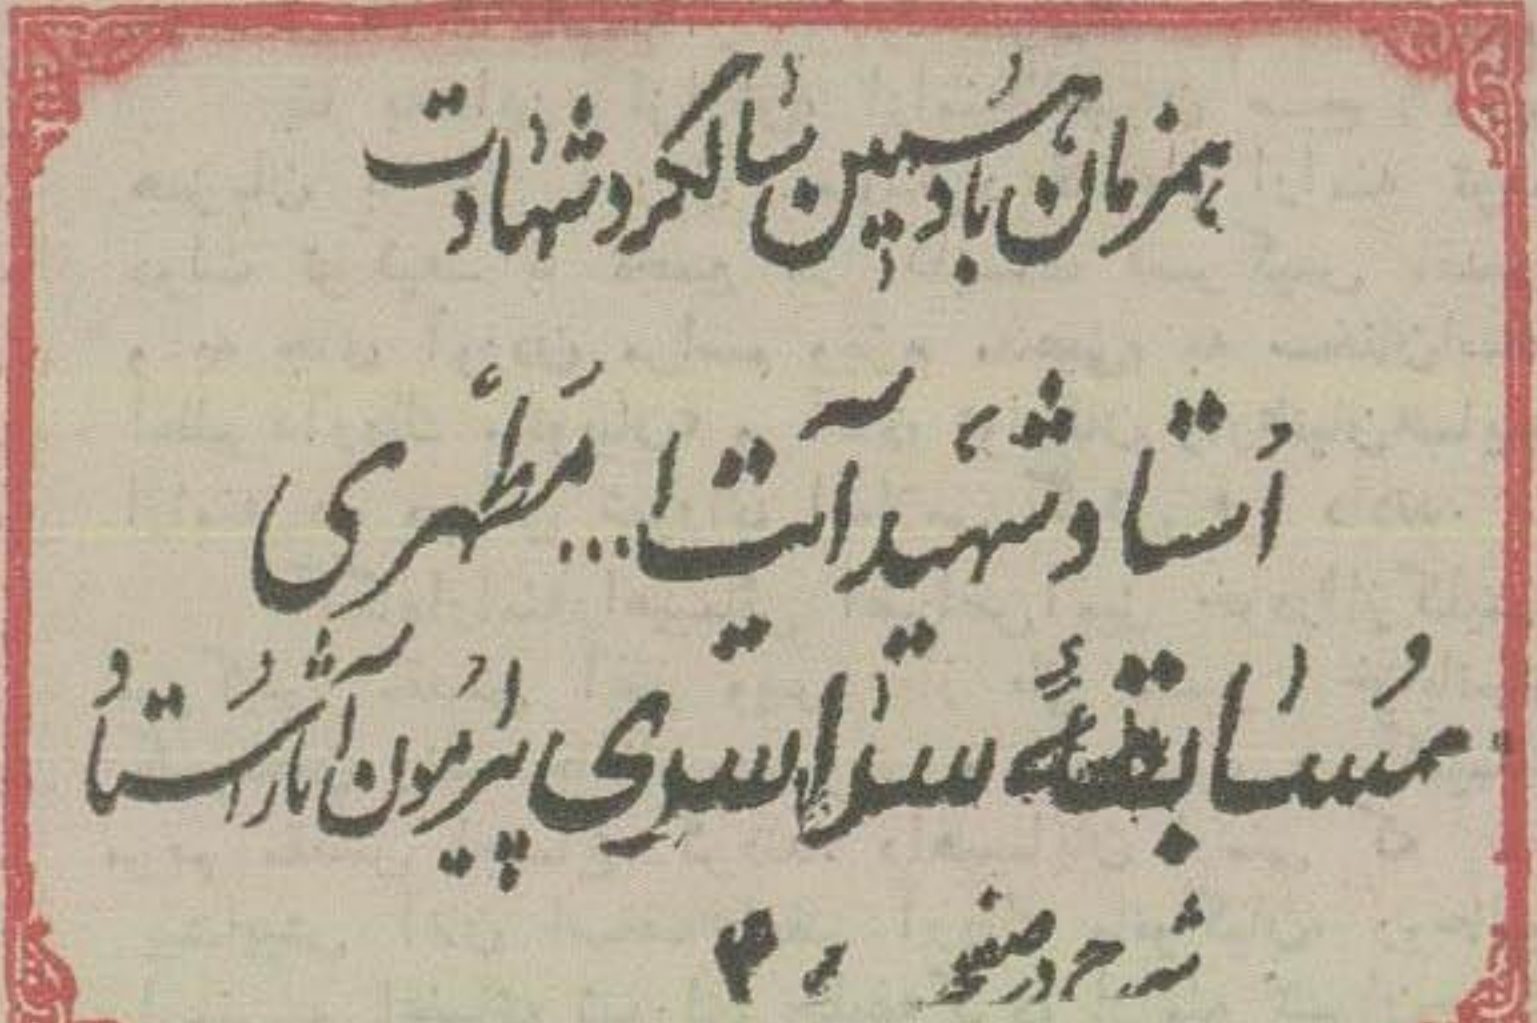 همزمان با دومین سالگرد شهادت
استاد شهید آیت ا... مطهری
مسابقهٔ سراسری پیرامون آثار استاد
شرح در صفحه